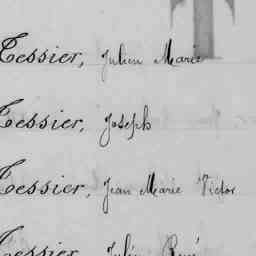 Tessier, Julien Marie
Tessier, Joseph
Tessier, Jean Marie Victor
Tessier, Julien René